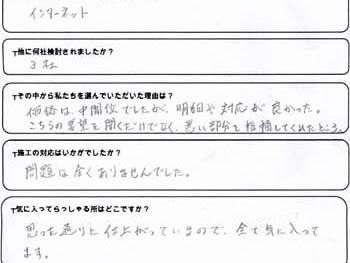 インターネット
T他に何社検討されましたか？
3社
Tその中から私たちを選んでいただいた理由は？
価格は、中間位でしたが、明細や対応が良かった。
こちらの要望を聞くだけでなく、悪い部分を指摘してくれたところ。
T施工の対応はいかがでしたか？
問題は全くありませんでした。
T気に入ってらっしゃる所はどこですか？
思った通りに仕上がっているので、全て気に入って
ます。